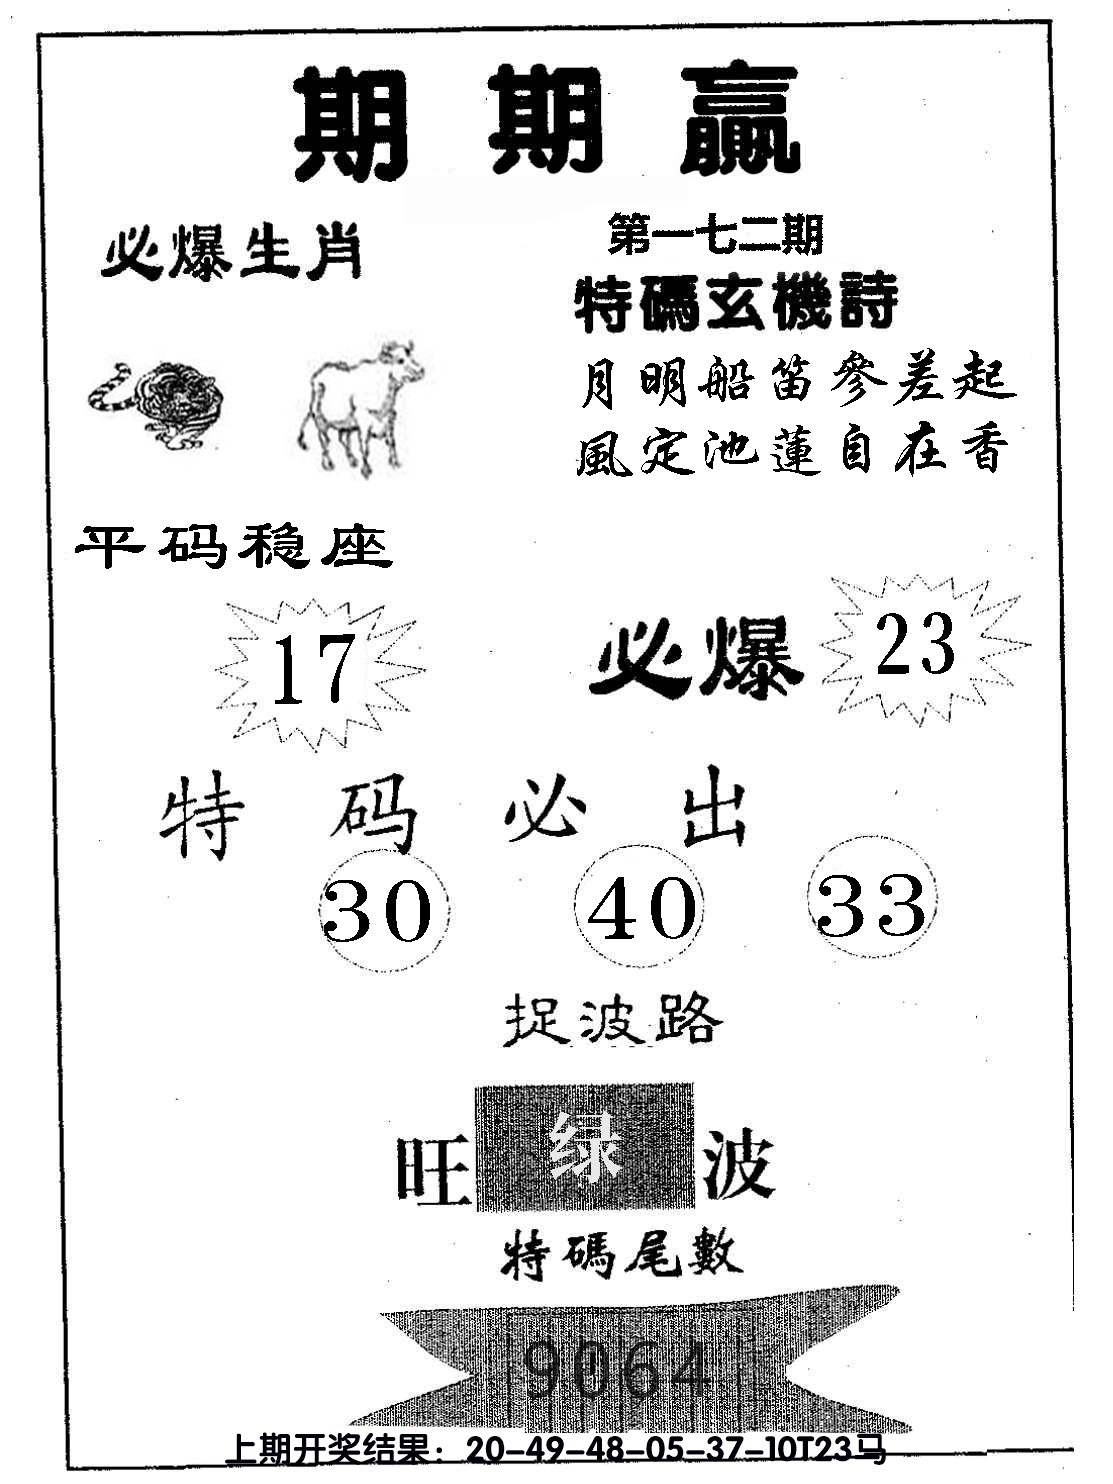 期期贏
必爆生肖
第一七二期
特碼玄機詩
月明船笛參差起
風定池蓮自在香
平码稳座
17
必爆
23
特码必出
30 40 33
捉波路
旺绿波
特碼尾數
9064
上期开奖结果：20-49-48-05-37-10T23马